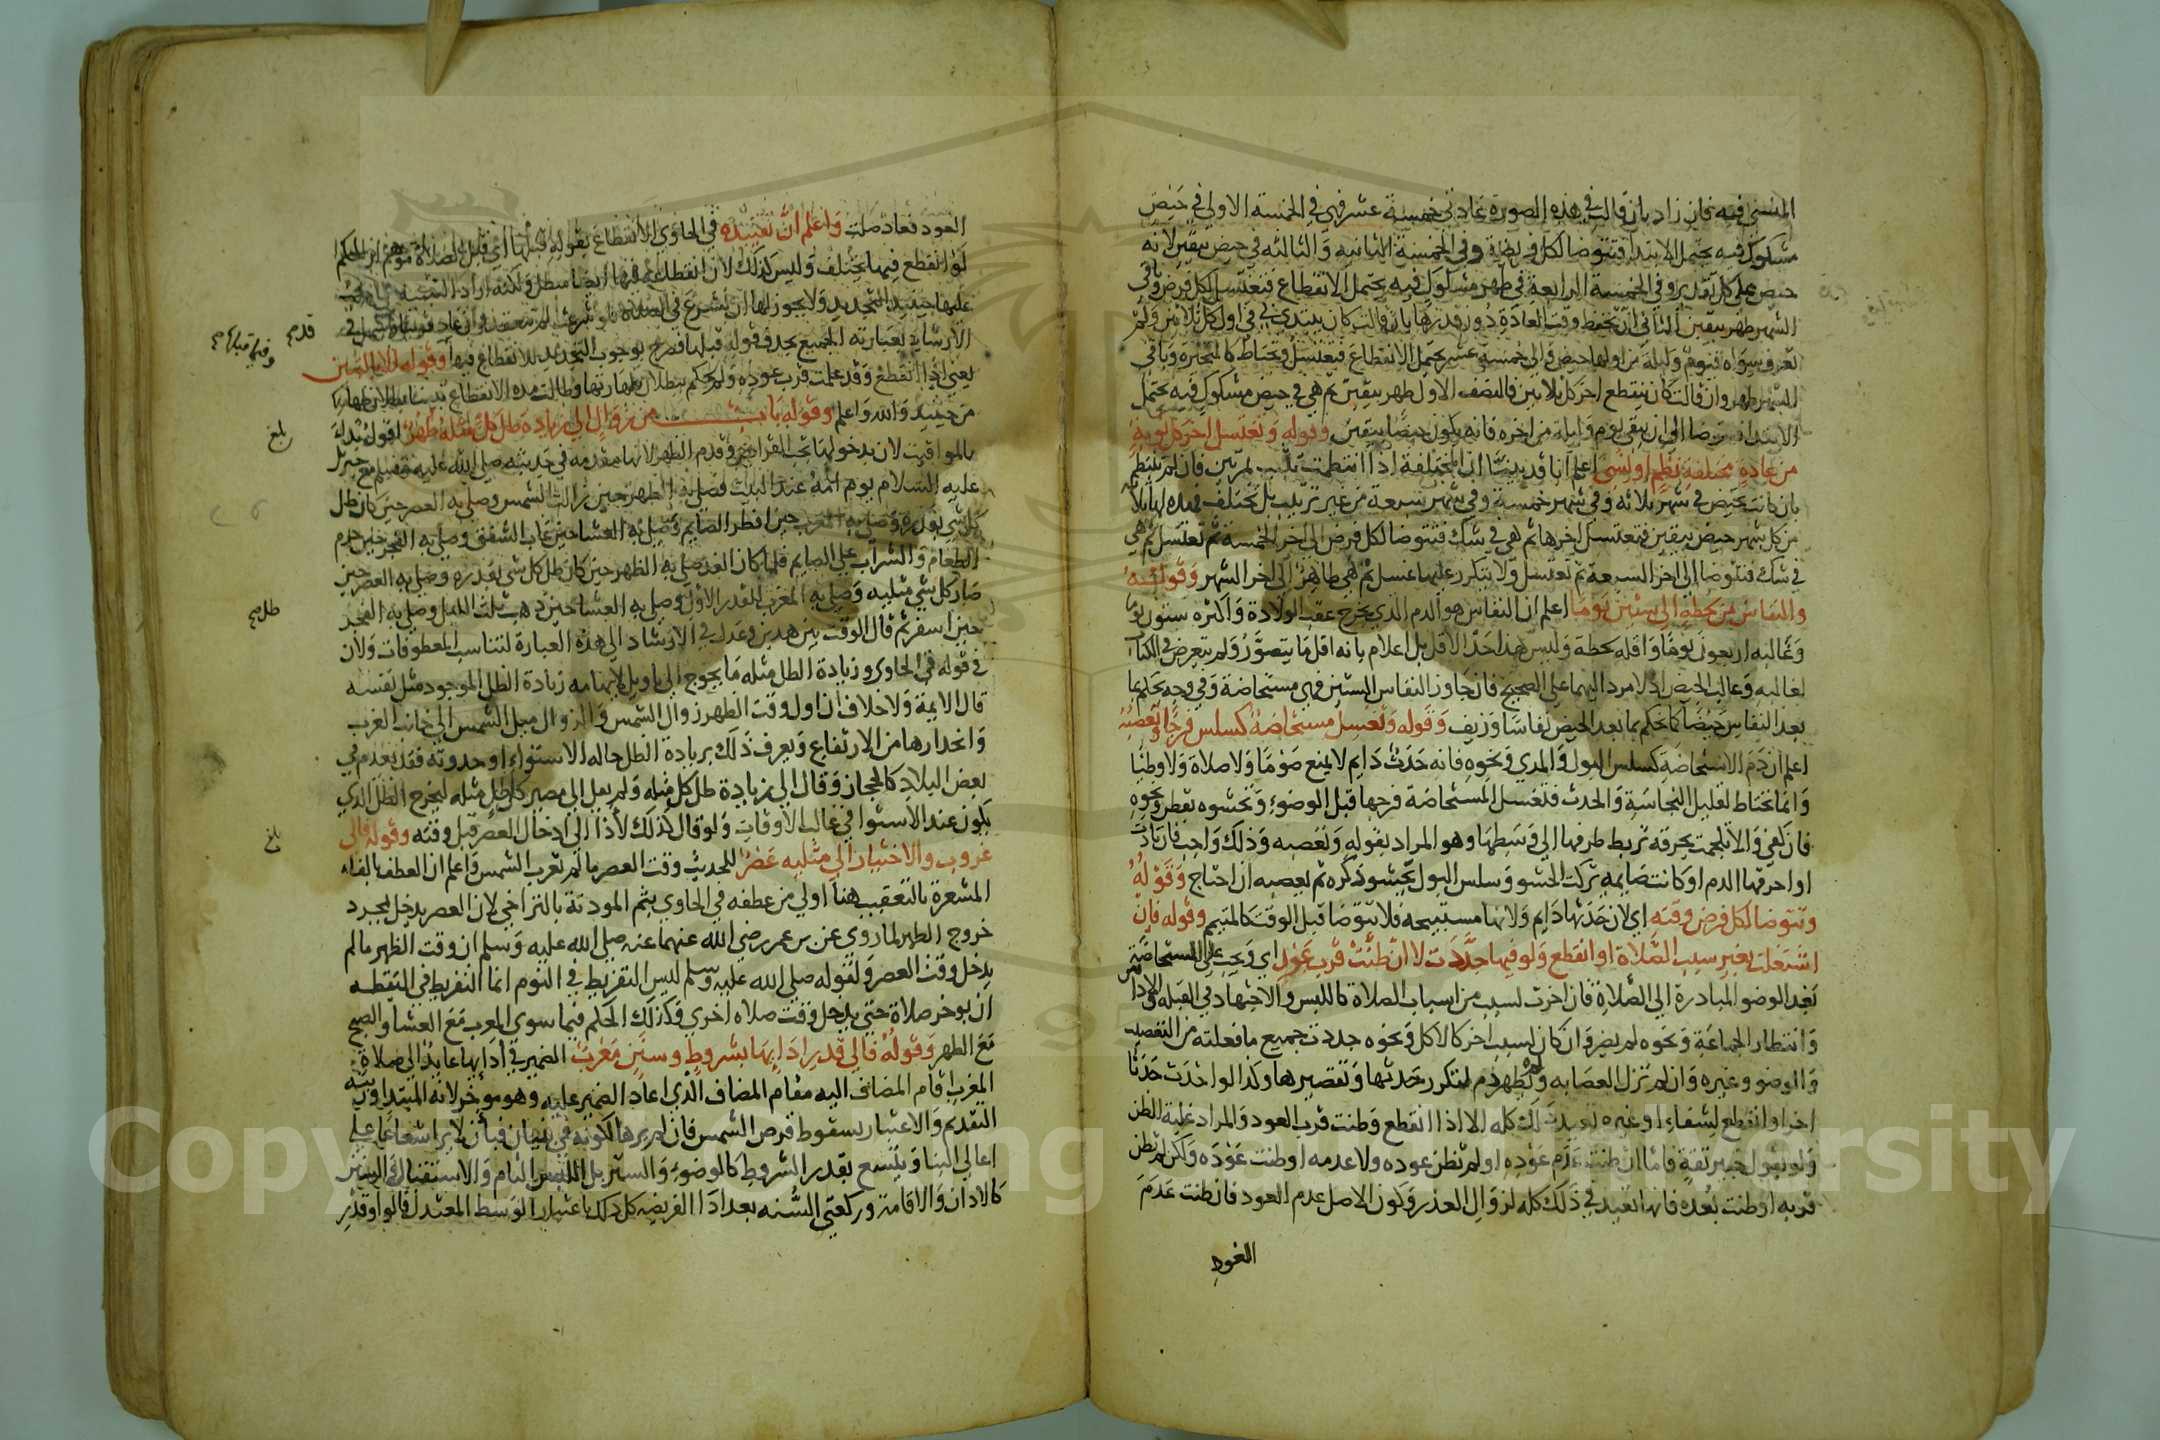 المنسي فيه فان زاد بان قالت في هذه الصورة عادتي خمسة عشر فهي في الخمسة الاولى في حيض
مشكوك فيه يحتمل الابتدا فتتوضا لكل فريضة وفي الخمسة الثانية والثالثة في حيض بيقين لانه
حيض على كل تقدير وفي الخمسة الرابعة في طهر مشكوك فيه يحتمل الانقطاع فتغتسل لكل فرض وباقي
الشهر طهر بيقين الثاني ان تحفظ وقت العادة دون قدرها بان قالت كان يبتدي في اول كل ثلاثين ولم
تعرف سواه فيوم وليلة من اولها حيض والى خمسة عشر يحتمل الانقطاع فتغتسل وتحتاط كالمتحيرة وباقي
الشهر طهر وان قالت كان ينقطع اخر كل ثلاثين فالنصف الاول طهر بيقين ثم هي في حيض مشكوك فيه يحتمل
الابتدا فتتوضا الى ان يبقى يوم وليلة من اخره فانه يكون حيضا بيقين وقوله وتغتسل اخر كل نوبة
من عادة مختلفة نظم او نسي اعلم انا قد بينا ان المختلفة اذا انتظمت تثبت بمرتين فان لم تنتظم
بان كانت تحيض في شهر ثلاثة وفي شهر خمسة وفي شهر سبعة من غير ترتيب بل تختلف فهذه لها ثلاثة
من كل شهر حيض بيقين فتغتسل اخرها ثم هي في شك فتتوضا لكل فرض الى اخر الخمسة ثم تغتسل ثم هي
في شك فتتوضا الى اخر السبعة ثم تغتسل ولا يتكرر عليها غسل ثم هي طاهر الى اخر الشهر وقوله
والنفاس من لحظة الى ستين يوما اعلم ان النفاس هو الدم الذي يخرج عقب الولادة واكثره ستون يوما
وغالبه اربعون يوما واقله لحظة وليس هذا حد الاقل بل اعلام بانه اقل ما يتصور ولم يتعرض في الكتاب
لغالبه وغالب الحيض اذ لا مرد اليهما على الصحيح فان جاوز النفاس الستين فهي مستحاضة وفي وجه نحكم بما
بعد النفاس حيضا كما نحكم بما بعد الحيض نفاسا وزيف وقوله وتغسل مستحاضة كسلس فرجا وتعصبه
اعلم ان دم الاستحاضة كسلس البول والمذي ونحوه فانه حدث دايم لا يمنع صوما ولا صلاة ولا وطئا
وانما تحتاط لتقليل النجاسة والحدث فتغسل المستحاضة فرجها قبل الوضوء وتحشوه بقطن ونحوه
فان كفى والا تلجمت بخرقة تربط طرفها الى وسطها وهو المراد بقوله وتعصبه وذلك واجب فان تاذت
او احرقها الدم او كانت صايمة تركت الحشو وسلس البول يحشو ذكره ثم يعصبه ان احتاج وقوله
وتتوضا لكل فرض وقته اي لان حدثها دايم ولانها مستبيحة فلا تتوضا قبل الوقت كالمتيمم وقوله فان
اشتغلت بغير سبب الصلاة او انقطع ولو فيها جددت لا ان ظنت قرب عود اي ويجب على المستحاضة
بعد الوضو المبادرة الى الصلاة فان اخرت لسبب من اسباب الصلاة كاللبس والاجتهاد في القبلة والاذان
وانتظار الجماعة ونحوه لم يضر وان كان لسبب اخر كالاكل ونحوه جددت جميع ما فعلته من التعصيب
والوضو وغيره وان لم تزل العصابه ولم يظهر دم لتكرر حدثها وتقصيرها وكذا لو احدثت حدثا
اخر او انقطع لشفاء او غيره كله الا اذا انقطع وظنت قرب العود والمراد غلبة الظن
ولو بقول خبير ثقة فاما ان ظنت عدم عوده او لم تظن عوده ولا عدمه او ظنت عوده ولكن لم تظن
قربه او ظنت بعده فانها تعيد في ذلك كله لزوال العذر وكون الاصل عدم العود فان ظنت عدم
العود
العود فعاد صلت واعلم ان تقييده في الحاوي الانقطاع بقوله قبلها اي قبل الصلاة موهم ان الحكم
لو انقطع فيها يختلف وليس كذلك لان انقطاع الدم فيها ايضا مبطل ولكنه اراد التنبيه
عليها حينئذ التجديد ولا يجوز لها ان تشرع في الصلاة
الارشاد لعبارته الجميع بحذف قوله قبلها فصرح بوجوب التجديد للانقطاع فيها وقوله
يعني اذا انقطع وقد علمت قرب عوده ولم يحكم ببطلان طهارتها وطالت مدة الانقطاع
من حينئذ والله واعلم وقوله باب من زوال الى زيادة ظل كل مثله ظهر اقول بدات
بالمواقيت لان بدخولها تجب الفرايض وقدم الظهر لانها مقدمة في حديثه صلى الله عليه وسلم مع جبريل
عليه السلام يوم امه عند البيت فصلى به الظهر حين زالت الشمس وصلى به العصر حين كان ظل
كل شي بقدره وصلى به المغرب حين افطر الصايم وصلى به العشا حين غاب الشفق وصلى به الفجر حين حرم
الطعام والشراب على الصايم فلما كان الغد صلى به الظهر حين كان ظل كل شي بقدره وصلى به العصر حين
صار كل شي مثليه وصلى به المغرب للقدر الاول وصلى به العشا حين ذهب ثلث الليل وصلى به الفجر
حين اسفر ثم قال الوقت بين هذين وعدل في الارشاد الى هذه العبارة لتناسب المعطوفات ولان
في قوله في الحاوي وزيادة الظل مثله ما يحوج الى تاويل لايهامه زيادة الظل الموجود مثل نفسه
قال الايمة ولا خلاف ان اول وقت الظهر زوال الشمس والزوال ميل الشمس الى جانب الغرب
وانحدارها من الارتفاع ويعرف ذلك بزيادة الظل حاله الاستواء او حدوثه فقد يعدم في
بعض البلاد كالحجاز وقال الى زيادة ظل كل مثله ولم يقل الى مصير كل ظل مثله ليخرج الظل الذي
يكون عند الاستوا في غالب الاوقات ولو قال كذلك لادا الى ادخال العصر قبل وقته وقوله فالى
غروب والاختيار الى مثليه عصر للحديث وقت العصر ما لم تغرب الشمس واعلم ان العطف بالفاء
المشعرة بالتعقيب هنا اولى من عطفه في الحاوي بثم الموذنة بالتراخي لان العصر يدخل بمجرد
خروج الظهر لما روي عن بن عمر رضي الله عنهما عنه صلى الله عليه وسلم ان وقت الظهر ما لم
يدخل وقت العصر ولقوله صلى الله عليه وسلم ليس التفريط في النوم انما التفريط في اليقظه
ان يوخر صلاة حتى يدخل وقت صلاه اخرى وكذلك الحكم فيما سوى المغرب مع العشا والصبح
مع الظهر وقوله فالى قدر ادايها بشروط وسنن مغرب الضمير في ادايها عايد الى صلاة
المغرب اقام المضاف اليه مقام المضاف الذي اعاد الضمير عليه وهو موخر لانه المبتدا ونيته
التقديم والاعتبار بسقوط قرص الشمس فان لم يرها لكونه في بنيان فبان لا يرى شعاعا على
اعالي البنا ويتسع بقدر الشروط كالوضوء والستر بل اللبس التام والاستقبال والسنن
كالاذان والاقامة وركعتي السنه بعد ادا الفريضه كل ذلك باعتبار الوسط المعتدل قالوا وقدر
قدم
بلغ
ظل
بلغ
Copy King University